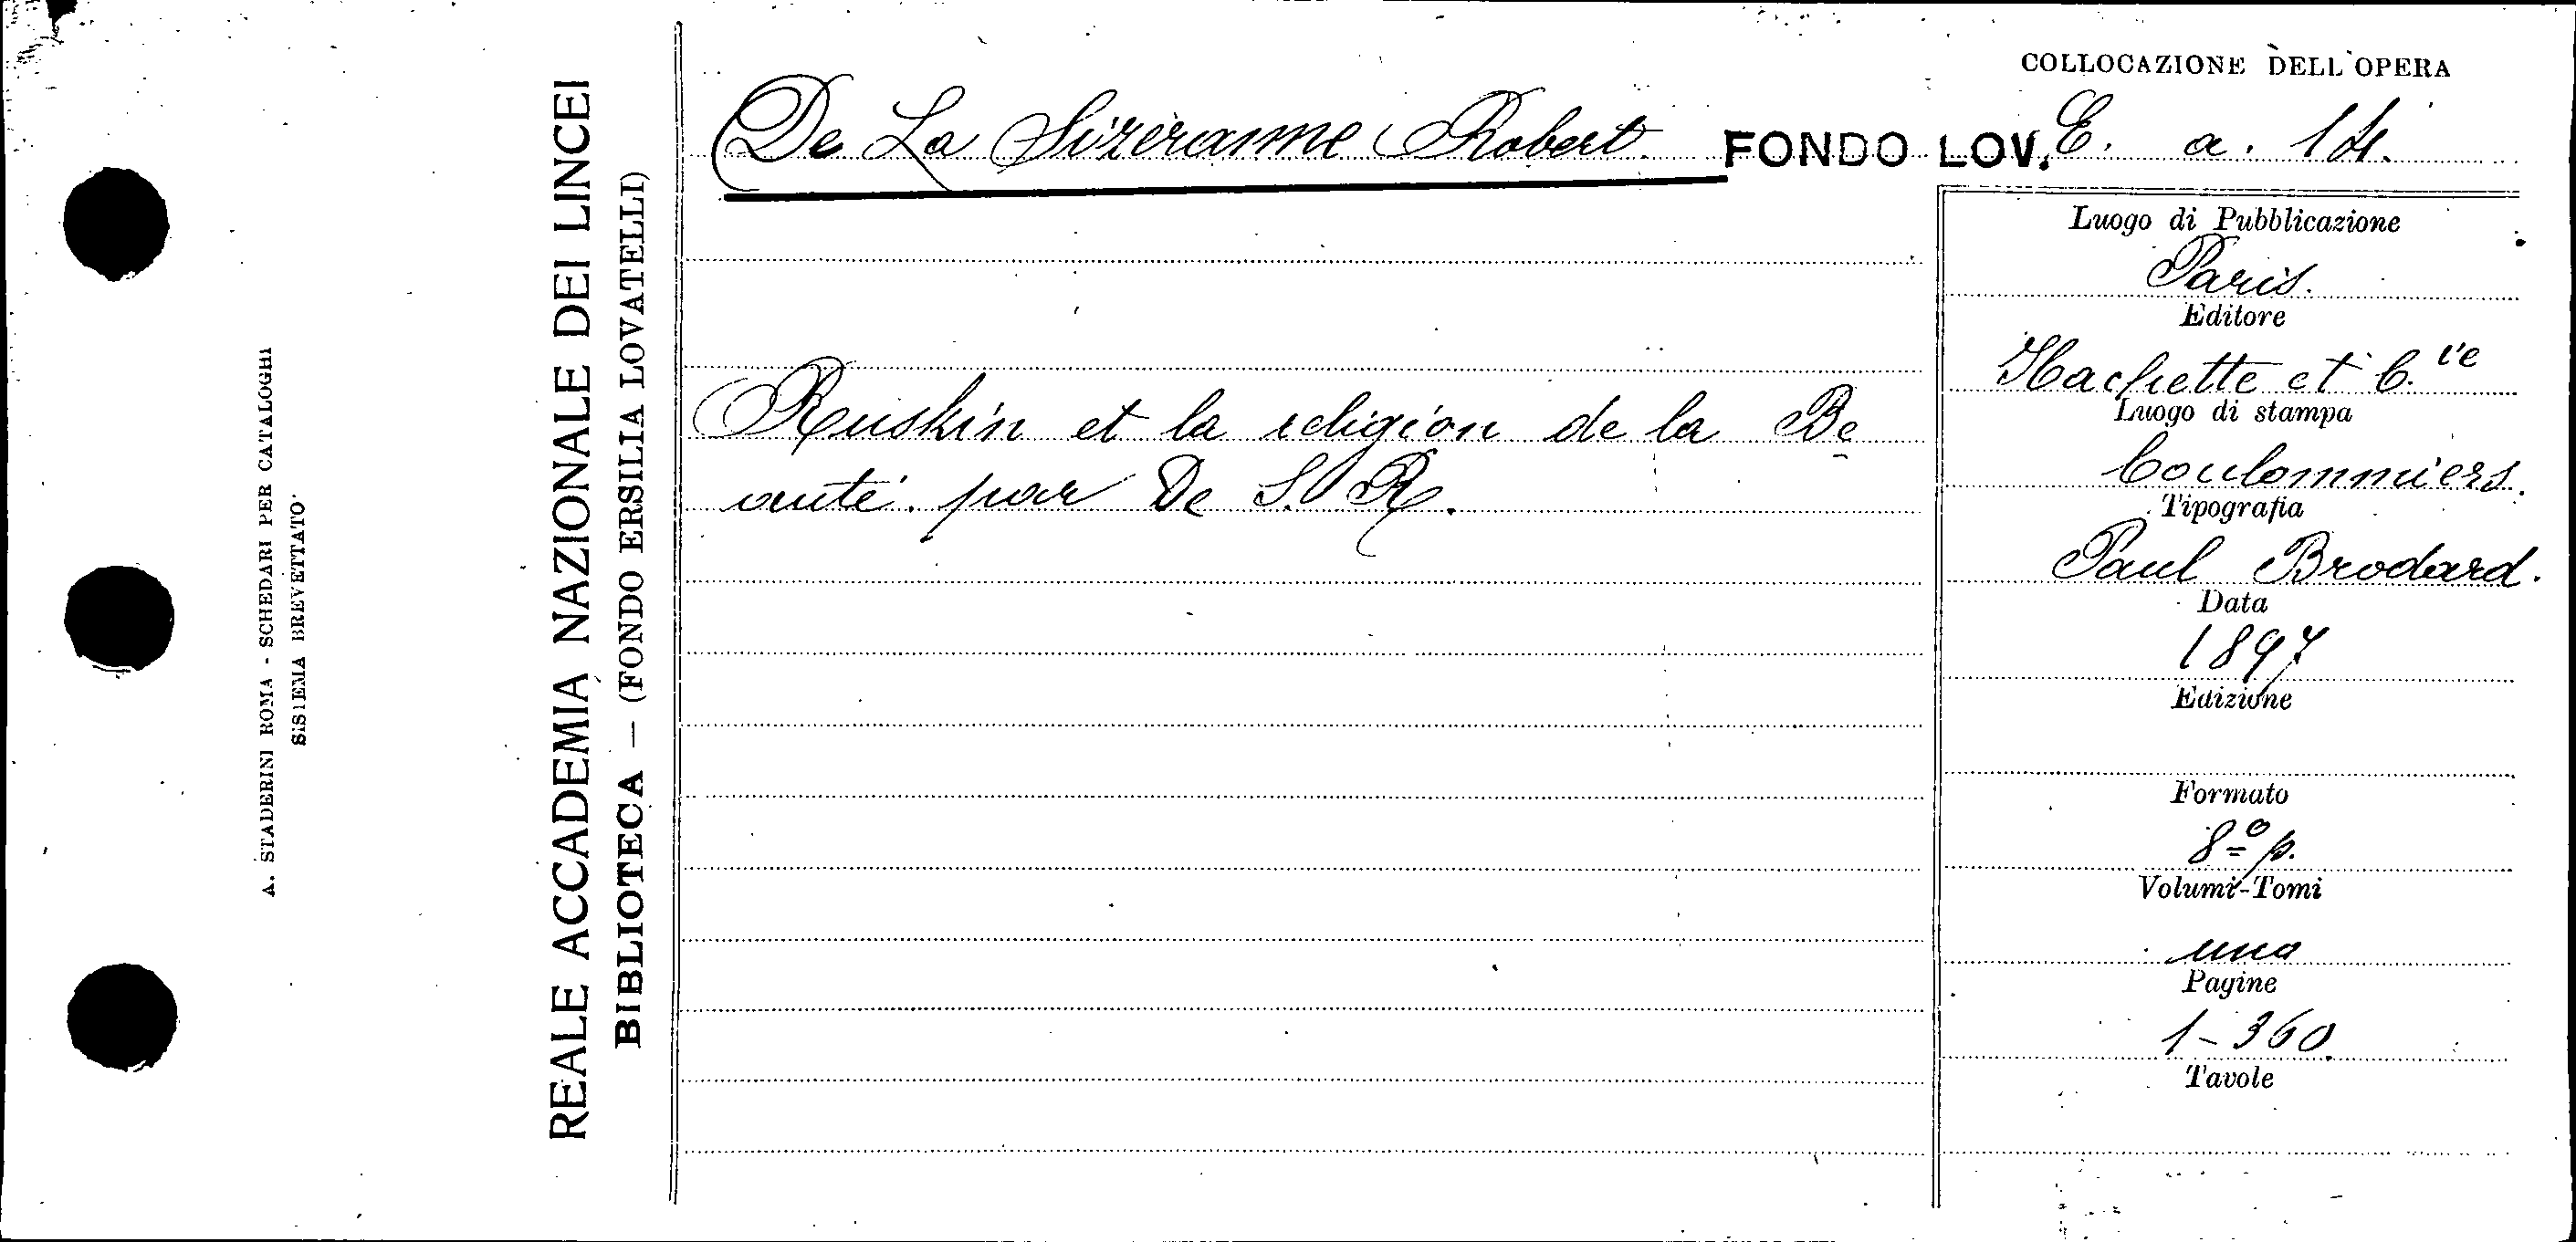 A. STADERINI ROMA - SCHEDARI PER CATALOGHI
SISTEMA BREVETTATO
REALE ACCADEMIA NAZIONALE DEI LINCEI
BIBLIOTECA — (FONDO ERSILIA LOVATELLI)
De La Sizeranne Robert.
Ruskin et la religion de la Be
auté. par De S. R.
COLLOCAZIONE DELL'OPERA
FONDO LOV. E. a. 14.
Luogo di Pubblicazione
Paris.
Editore
Hachette et C.ie
Luogo di stampa
Coulommiers.
Tipografia
Paul Brodard.
Data
1897
Edizione
Formato
8º p.
Volumi-Tomi
uno
Pagine
1-360
Tavole